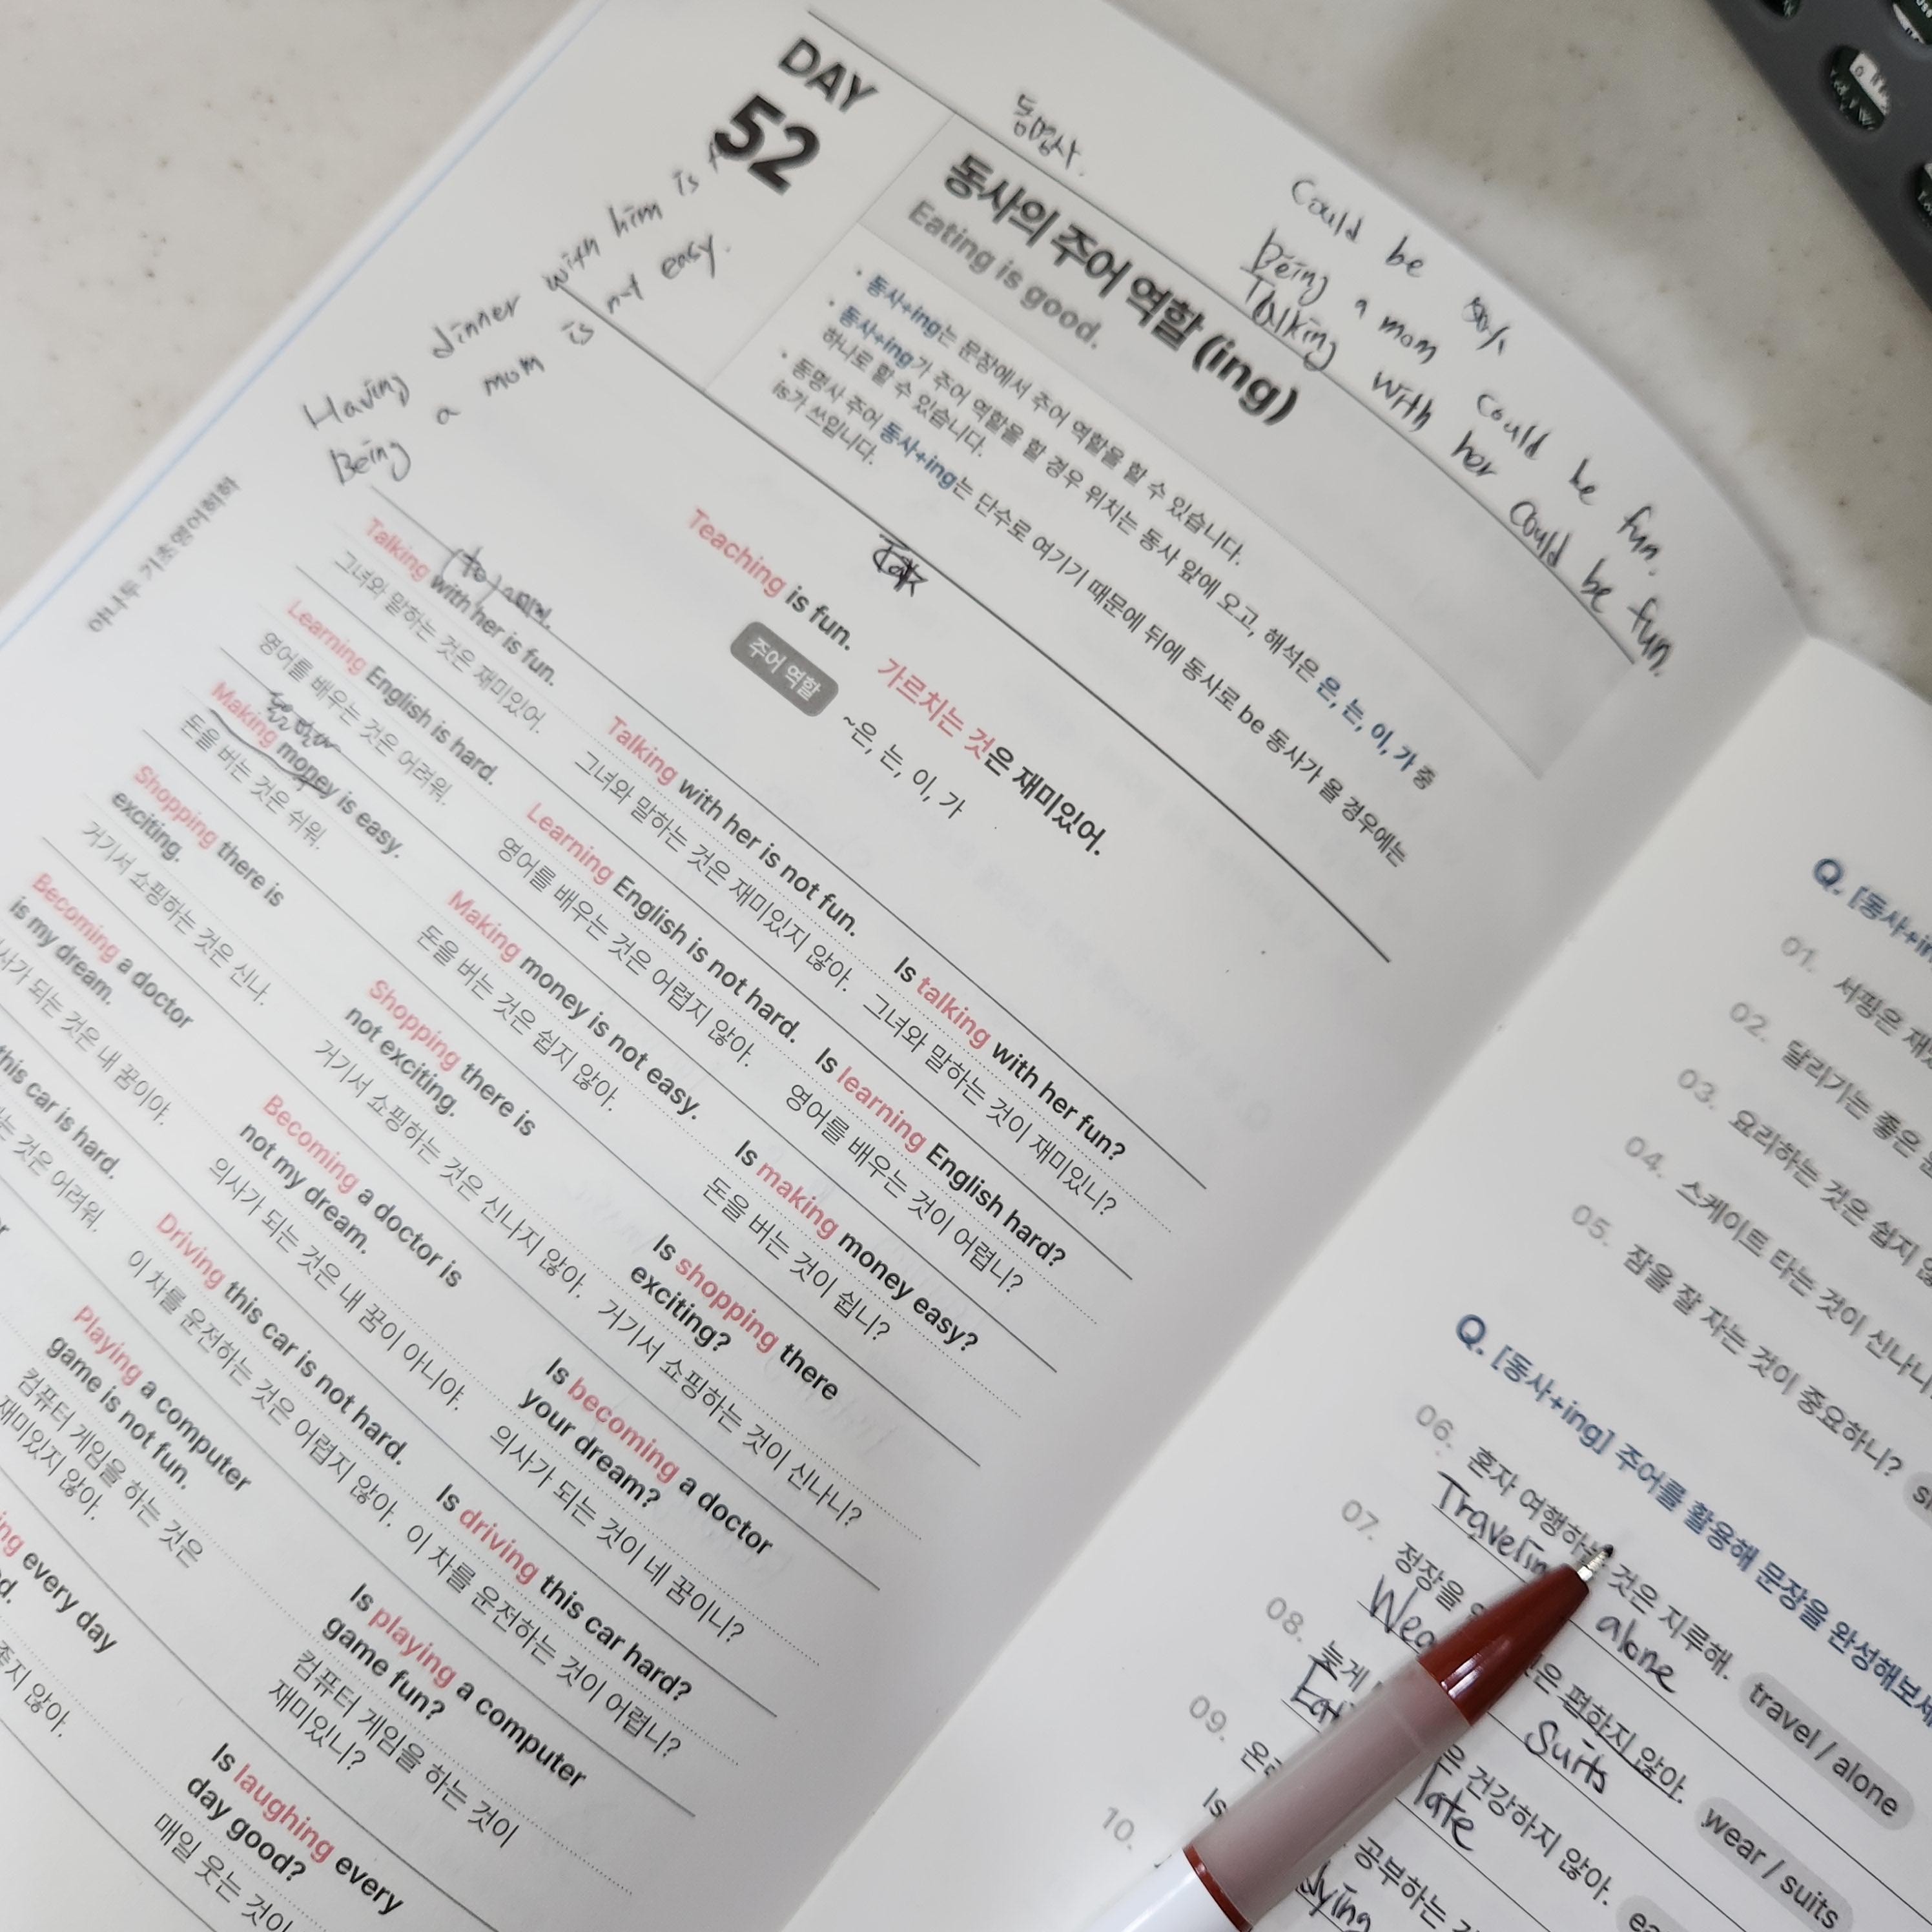 DAY
52
동명사.
동사의 주어 역할 (ing)
Eating is good.
Could be
Being a mom could be fun.
Talking with her could be fun.
Having dinner with him is
Being a mom is not easy.
· 동사+ing는 문장에서 주어 역할을 할 수 있습니다.
· 동사+ing가 주어 역할을 할 경우 위치는 동사 앞에 오고, 해석은 은, 는, 이, 가 중
하나로 할 수 있습니다.
· 동명사 주어 동사+ing는 단수로 여기기 때문에 뒤에 동사로 be 동사가 올 경우에는
is가 쓰입니다.
야나두 기초영어회화
Teaching is fun. 가르치는 것은 재미있어.
주어 역할 ~은, 는, 이, 가
(to)
Talking with her is fun.
그녀와 말하는 것은 재미있어.
Talking with her is not fun.
그녀와 말하는 것은 재미있지 않아.
Is talking with her fun?
그녀와 말하는 것이 재미있니?
Learning English is hard.
영어를 배우는 것은 어려워.
Learning English is not hard.
영어를 배우는 것은 어렵지 않아.
Is learning English hard?
영어를 배우는 것이 어렵니?
Making money is easy.
돈을 버는 것은 쉬워.
Making money is not easy.
돈을 버는 것은 쉽지 않아.
Is making money easy?
돈을 버는 것이 쉽니?
Shopping there is
exciting.
거기서 쇼핑하는 것은 신나.
Shopping there is
not exciting.
거기서 쇼핑하는 것은 신나지 않아.
Is shopping there
exciting?
거기서 쇼핑하는 것이 신나니?
Becoming a doctor
is my dream.
되는 것은 내 꿈이야.
Becoming a doctor is
not my dream.
의사가 되는 것은 내 꿈이 아니야.
Is becoming a doctor
your dream?
의사가 되는 것이 네 꿈이니?
this car is hard.
것은 어려워.
Driving this car is not hard.
이 차를 운전하는 것은 어렵지 않아.
Is driving this car hard?
이 차를 운전하는 것이 어렵니?
Playing a computer
game is not fun.
컴퓨터 게임을 하는 것은
재미있지 않아.
Is playing a computer
game fun?
컴퓨터 게임을 하는 것이
재미있니?
every day
않아.
Is laughing every
day good?
매일 웃는 것이
Q. [동사+ing
01. 서핑은
02. 달리기는 좋은
03. 요리하는 것은 쉽지
04. 스케이트 타는 것이 신나니
05. 잠을 잘 자는 것이 중요하니?
Q. [동사+ing] 주어를 활용해 문장을 완성해보세
06. 혼자 여행하는 것은 지루해. travel / alone
alone
07. 정장을 편하지 않아. wear / suits
Suits
08. 늦게 건강하지 않아.
late
09.
Is
공부하는
10.